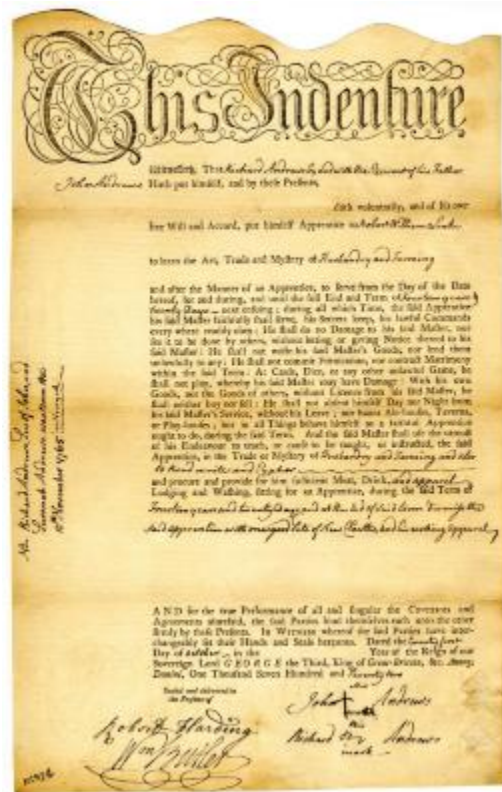 This Indenture
Witnesseth, That Richard Andrews by and with the Consent of his Father
John Andrews Hath put himself, and by these Presents,
doth voluntarily, and of his own
free Will and Accord, put himself Apprentice to Robert
to learn the Art, Trade and Mystery of Husbandry and Farming
and after the Manner of an Apprentice, to serve from the Day of the Date
hereof, for and during, and until the full End and Term of fourteen years
twenty Days next ensuing; during all which Time, the said Apprentice
his said Master faithfully shall serve, his Secrets keep, his lawful Commands
every where readily obey: He shall do no Damage to his said Master, nor
see it to be done by others, without letting or giving Notice thereof to his
said Master: He shall not waste his said Master's Goods, nor lend them
unlawfully to any: He shall not commit Fornication, nor contract Matrimony
within the said Term: At Cards, Dice, or any other unlawful Game, he
shall not play, whereby his said Master may have Damage: With his own
Goods, nor the Goods of others, without Licence from his said Master, he
shall neither buy nor sell: He shall not absent himself Day nor Night from
his said Master's Service, without his Leave; nor haunt Ale-houses, Taverns,
or Play-houses; but in all Things behave himself as a faithful Apprentice
ought to do, during the said Term. And the said Master shall use the utmost
of his Endeavour to teach, or cause to be taught, or instructed, the said
Apprentice, in the Trade or Mystery of Husbandry and Farming and also
to Read write and Cypher
and procure and provide for him sufficient Meat, Drink, and apparel
Lodging and Washing, fitting for an Apprentice, during the said Term of
fourteen years and twenty days and at the end of said term
said apprentice with one good suit of New Cloths, and working apparel
AND for the true Performance of all and singular the Covenants and
Agreements aforesaid, the said Parties bind themselves each unto the other
firmly by these Presents. In Witness whereof the said Parties have inter-
changeably set their Hands and Seals hereunto. Dated the twenty first
Day of October in the Year of the Reign of our
Sovereign Lord GEORGE the Third, King of Great-Britain, &c. Annoq;
Domini, One Thousand Seven Hundred and Seventy two
Sealed and delivered in
the Presence of
his
John Andrews
mark
his
Richard Andrews
mark
Robert Harding
Wm Butler
Richard Andrews
Andrews
November 1765